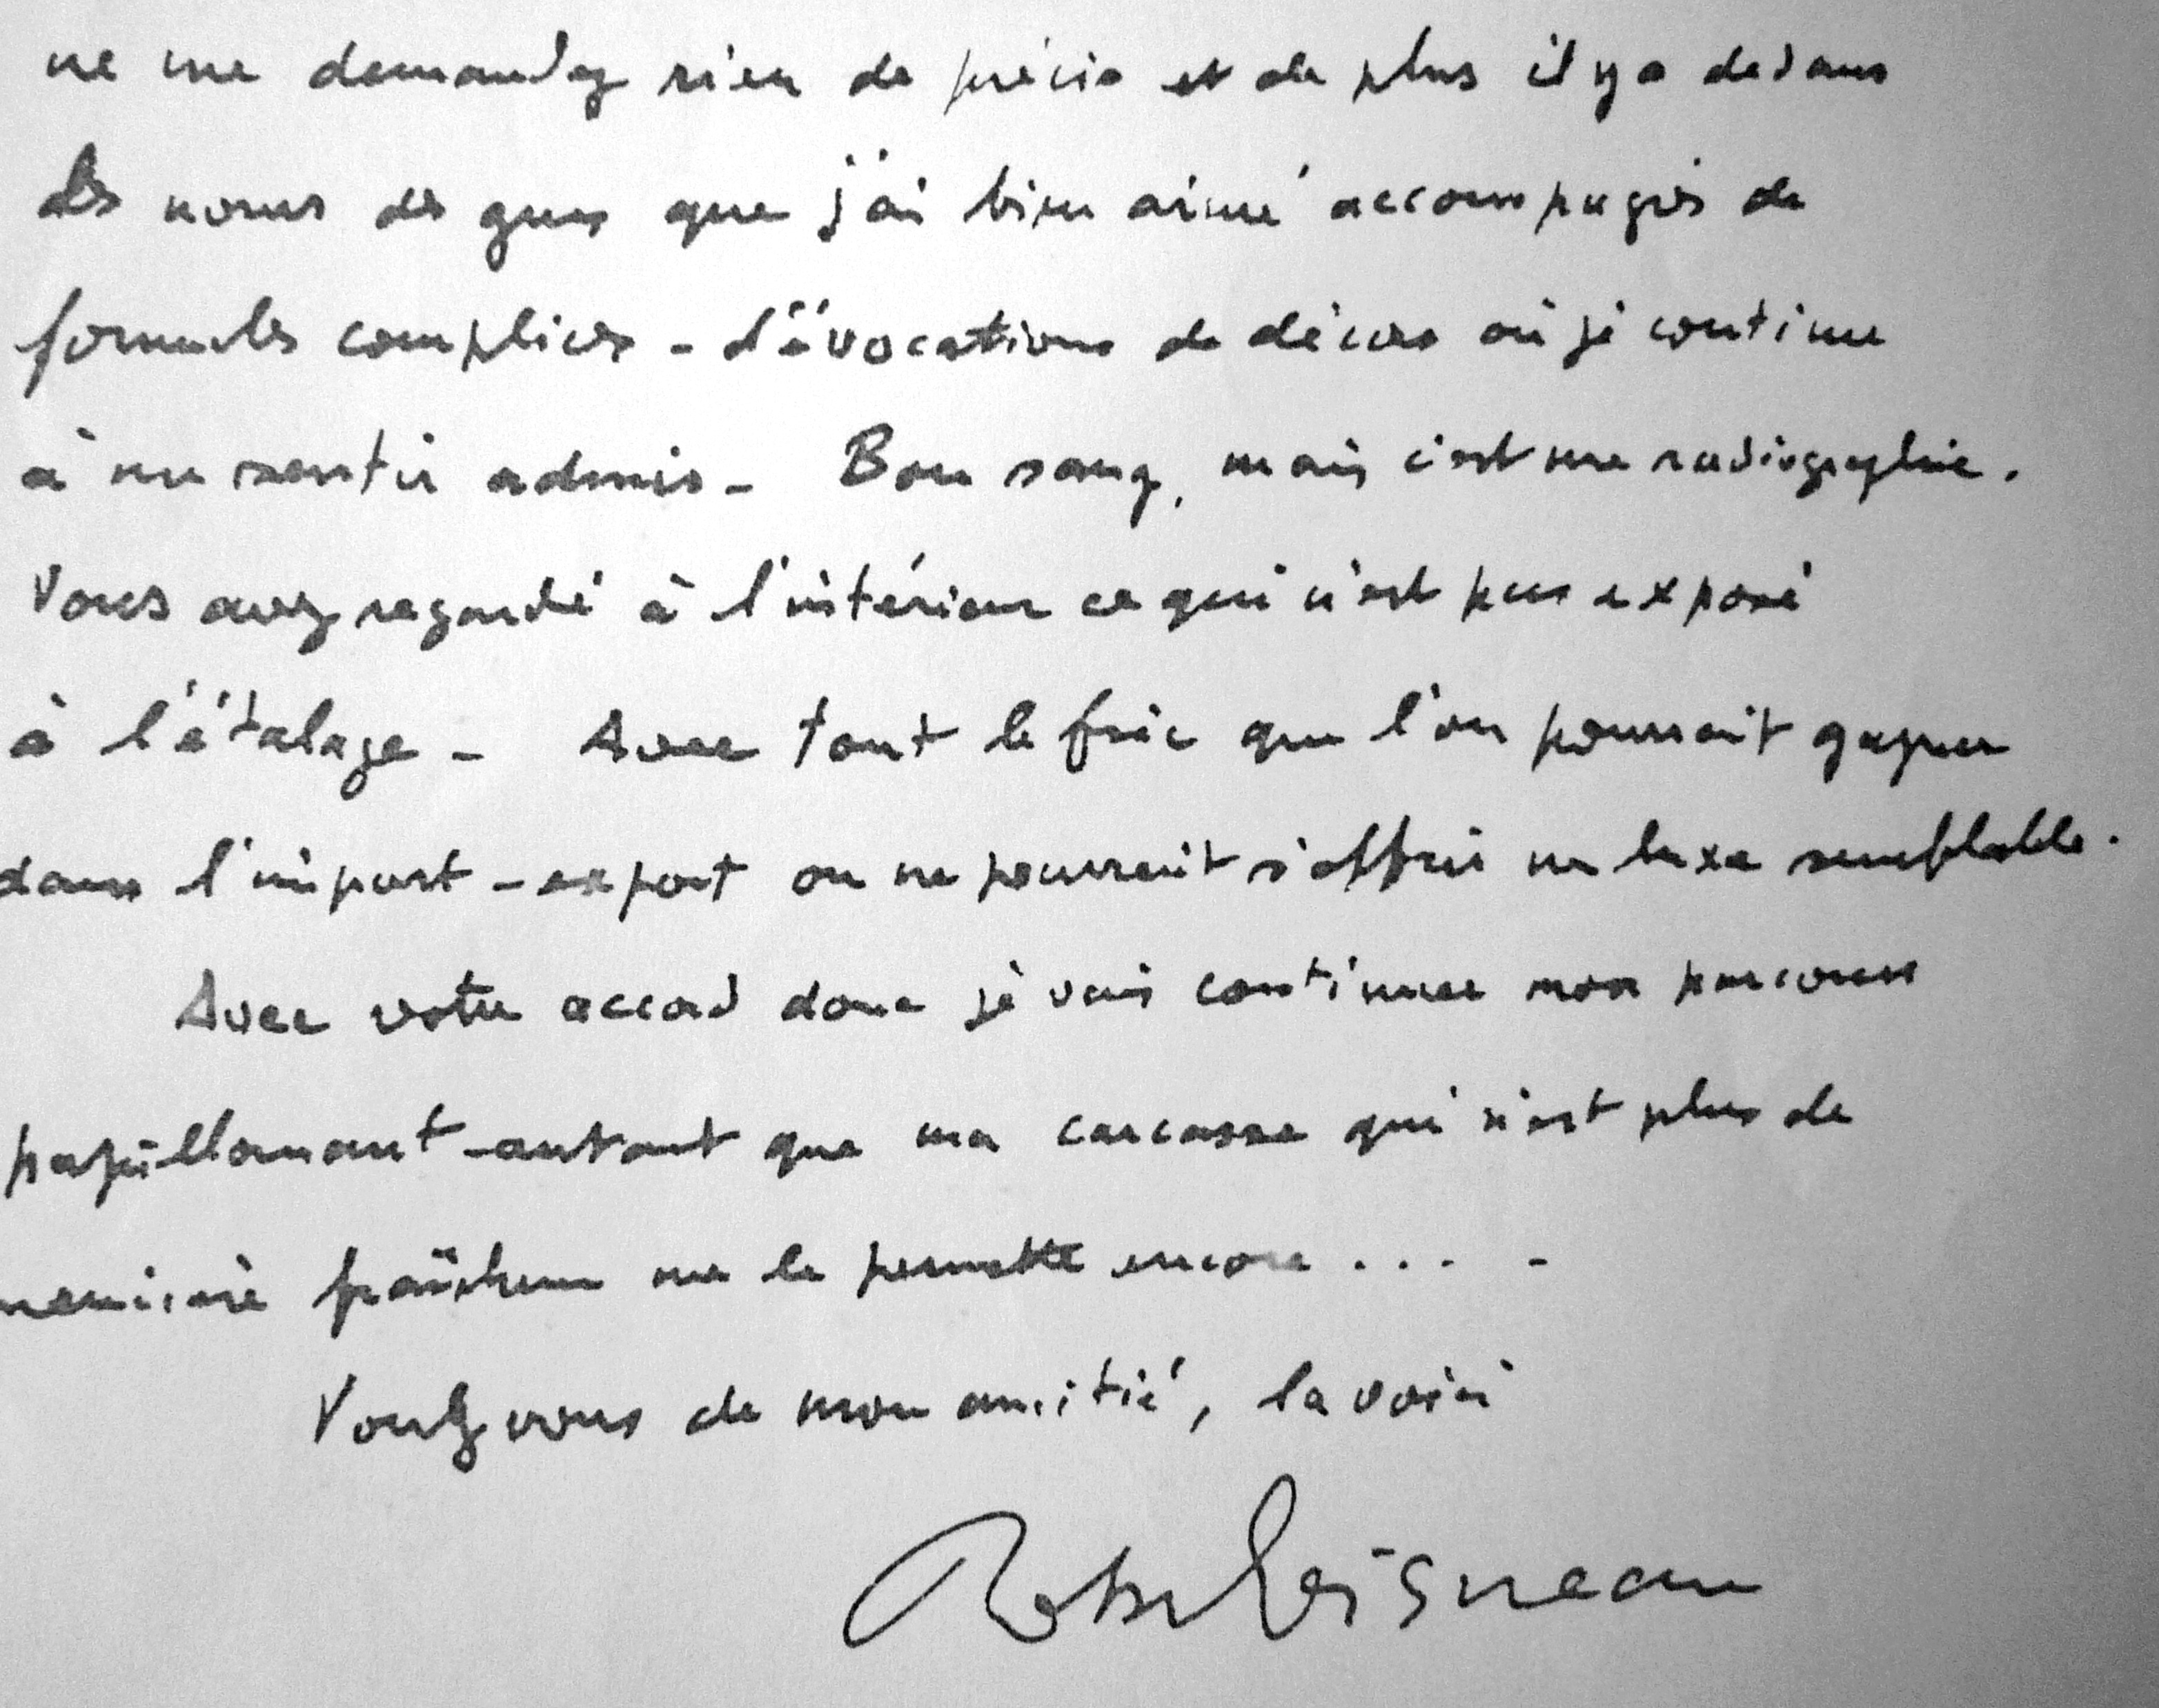 ne me demandez rien de précis et de plus il y a dedans
des noms de gens que j'ai bien aimé accompagnés de
formules complices - d'évocations de décors où je continue
à me sentir admis - Bon sang, mais c'est une radiographie.
Vous avez regardé à l'intérieur ce qui n'est pas exposé
à l'étalage - Avec tout le fric que l'on pourrait gagner
dans l'import-export on ne pourrait s'offrir un luxe semblable.
Avec votre accord donc je vais continuer mon parcours
papillonnant - autant que ma carcasse qui n'est plus de
première fraîcheur me le permette encore . . . -
Voulez vous de mon amitié, la voici
Robert Doisneau